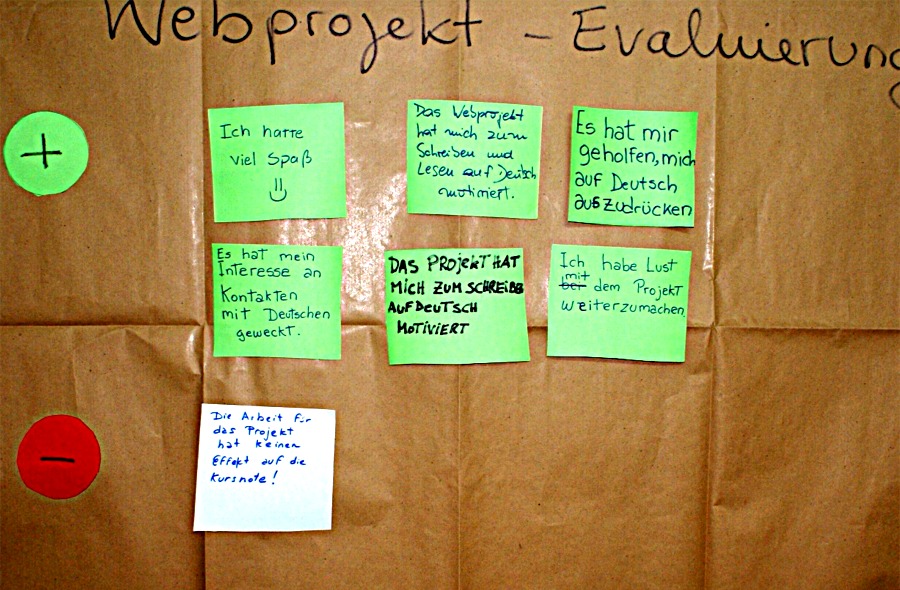 Webprojekt - Evaluierung
+
Ich hatte
viel Spaß
Das Webprojekt
hat mich zum
Schreiben und
Lesen auf Deutsch
motiviert.
Es hat mir
geholfen, mich
auf Deutsch
auszudrücken
Es hat mein
Interesse an
Kontakten
mit Deutschen
geweckt.
DAS PROJEKT HAT
MICH ZUM SCHREIBEN
AUF DEUTSCH
MOTIVIERT
Ich habe Lust
mit
bei dem Projekt
weiterzumachen.
-
Die Arbeit für
das Projekt
hat keinen
Effekt auf die
Kursnote!